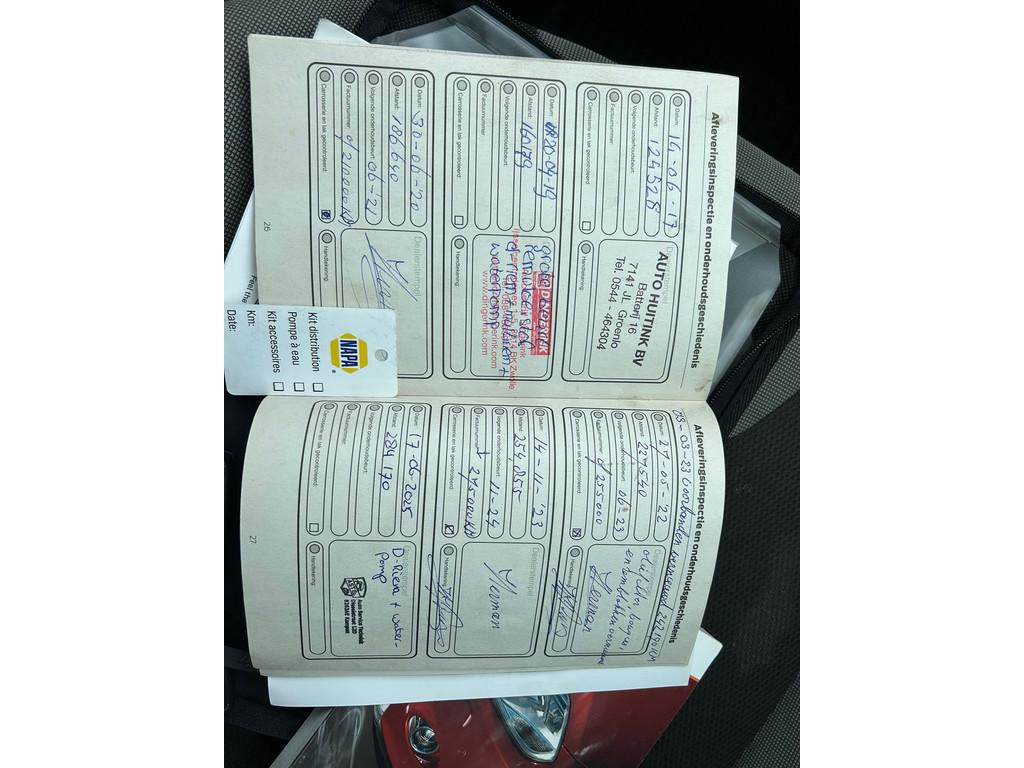 Afleveringsinspectie en onderhoudsgeschiedenis
Datum: 14-06-17
Afstand: 124528
Volgende onderhoudsbeurt:
Factuurnummer:
Carrosserie en lak gecontroleerd:
Dealerstempel
AUTO HUITINK BV
Batterij 16
7141 JL Groenlo
Tel. 0544 - 464304
Handtekening:
Datum: 20-09-19
Afstand: 160179
Volgende onderhoudsbeurt:
Factuurnummer:
Carrosserie en lak gecontroleerd:
grote
waterpomp
8014 BK Zwolle
www.dingerink.com
Handtekening:
Datum: 30-06-'20
Afstand: 186640
Volgende onderhoudsbeurt: 06-'21
Factuurnummer: of 210000 KM
Carrosserie en lak gecontroleerd:
Dealerstempel
Handtekening:
26
NAPA
Kit distribution
Pompe à eau
Kit accessoires
Km:
Date:
Feel the
08-03-23 voorbanden vernieuwd 242190 KM
Afleveringsinspectie en onderhoudsgeschiedenis
Datum: 27-05-'22
Afstand: 227540
Volgende onderhoudsbeurt: 06-23
Factuurnummer: of 255000
Carrosserie en lak gecontroleerd:
Dealerstempel
Herman
Handtekening:
Datum: 14-11-'23
Afstand: 254,855
Volgende onderhoudsbeurt: 11-24
Factuurnummer: of 275000 KM
Carrosserie en lak gecontroleerd:
Dealerstempel
Herman
Handtekening:
Datum: 17-06-2025
Afstand: 284170
Volgende onderhoudsbeurt:
Factuurnummer:
Carrosserie en lak gecontroleerd:
Dealerstempel
D-Riem + water-
pomp
Auto Service Techniek
Kampen
Handtekening:
27